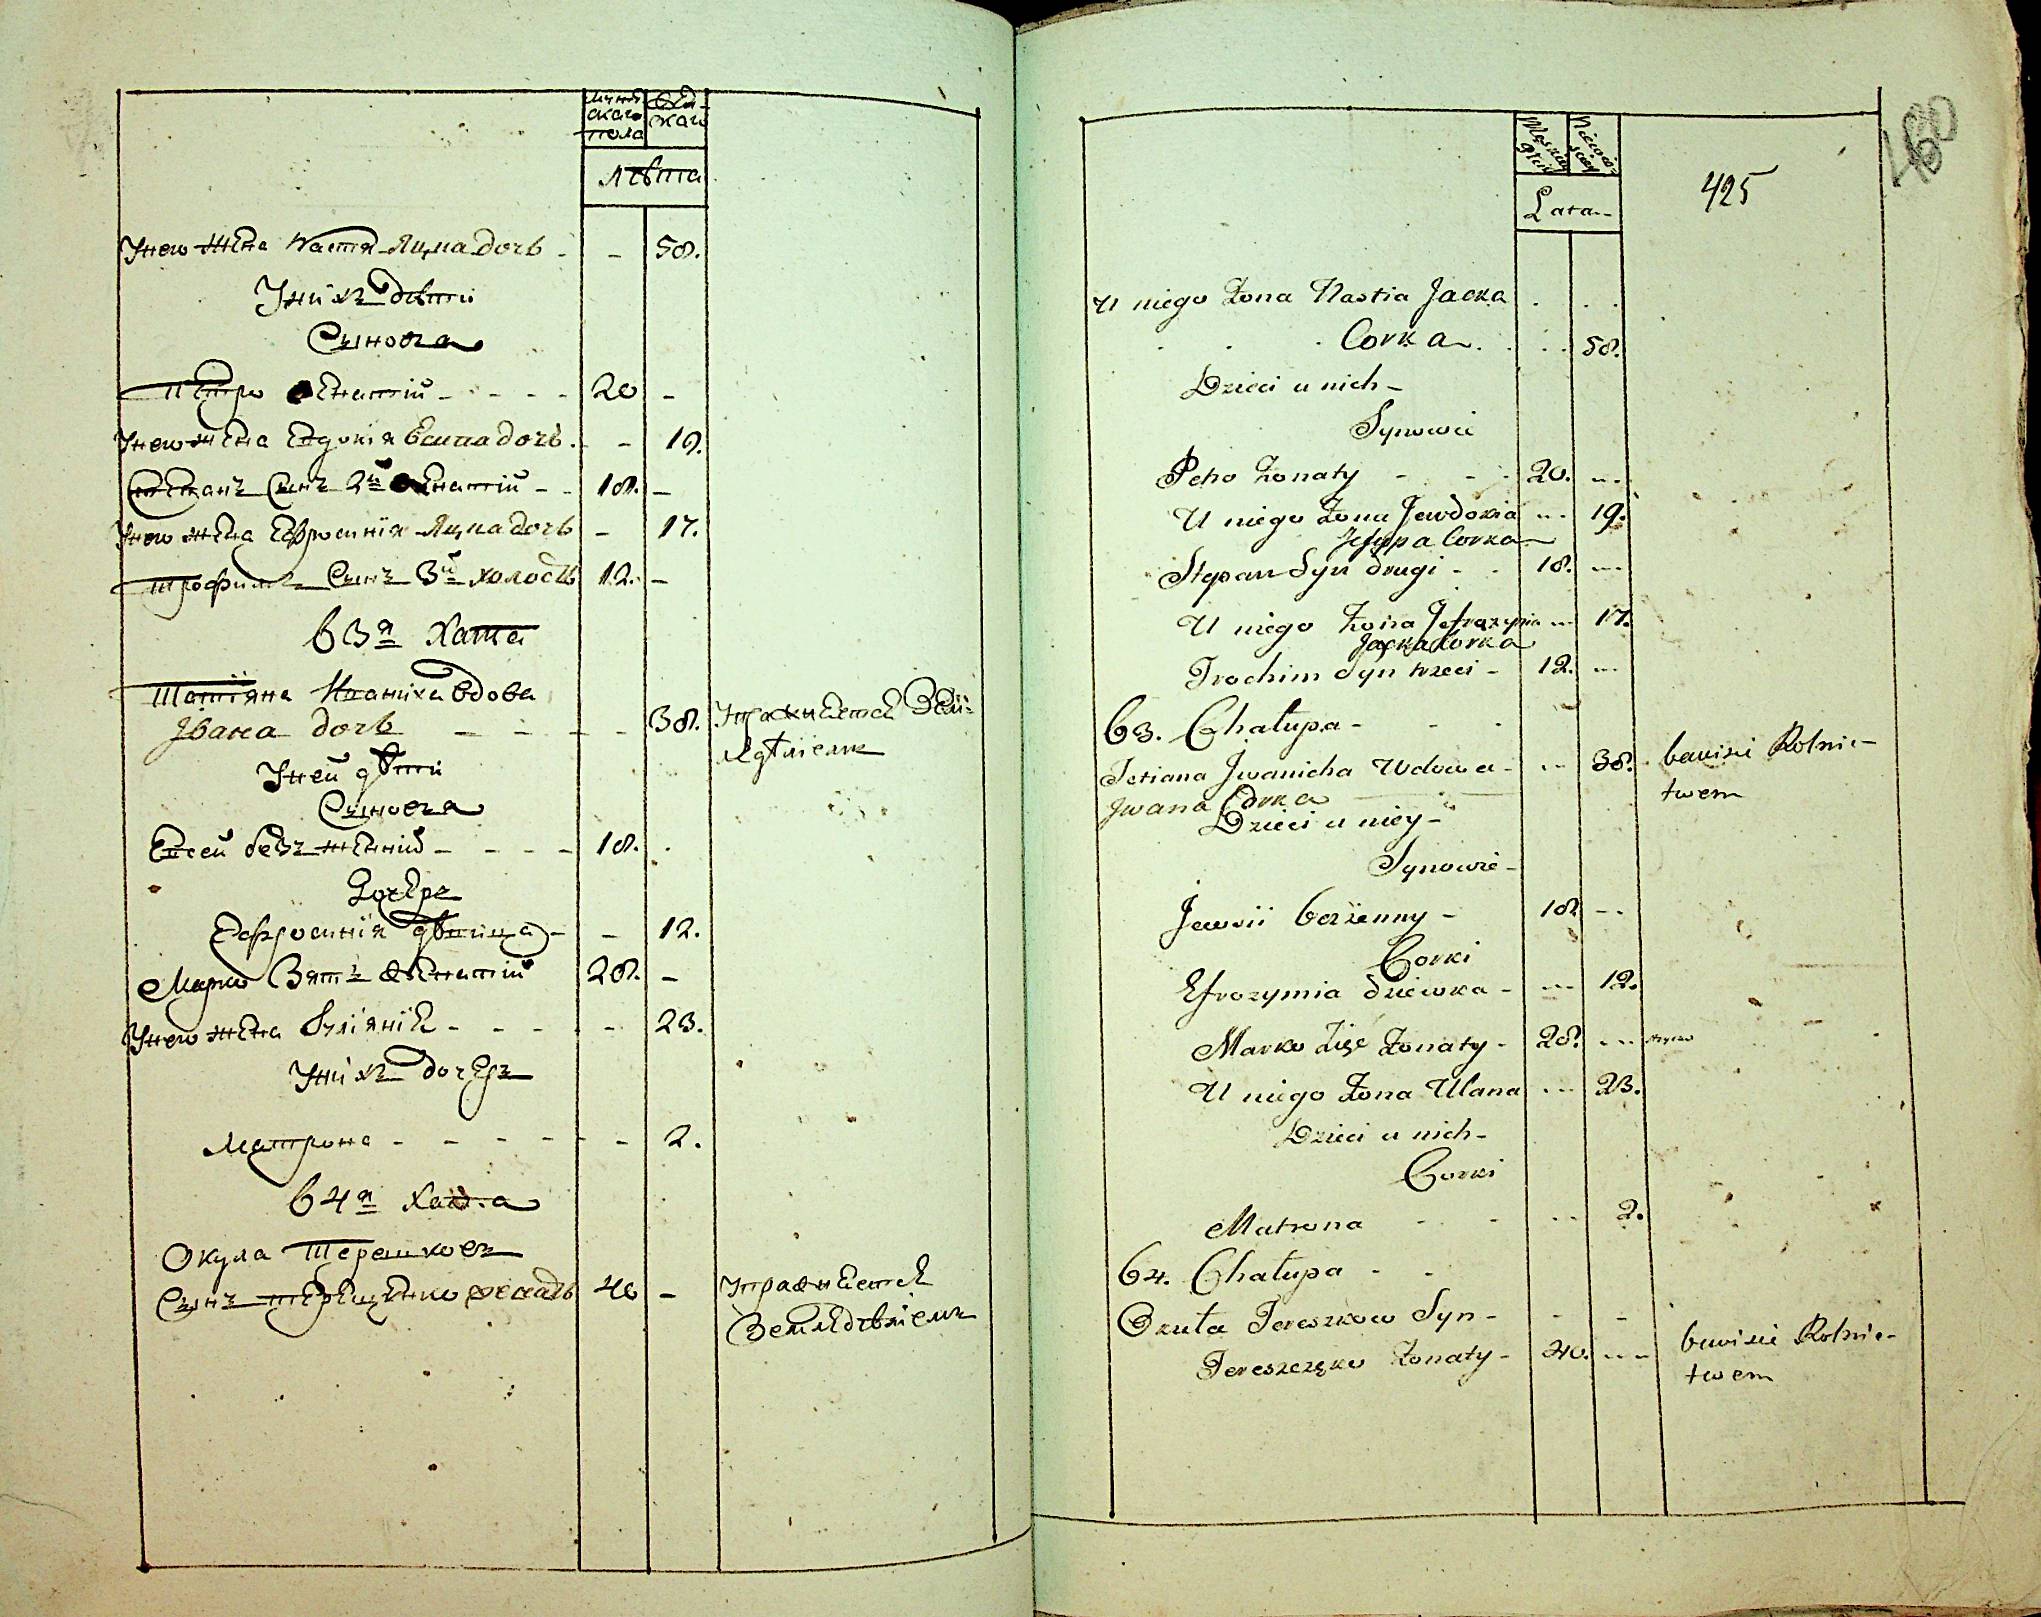 мужескаго пола
женскаго
лѣта
Унего жена Настя Яцка дочь - - 58.
Унихъ дѣти
Сыновья
Петро женатiй - - - - 20 -
Унего жена Евдокiя Есипа дочь. - 19.
Степанъ Сынъ 2й женатiй - - 18. -
Унего жена Ефросинiя Яцка дочь - 17.
Трофимъ Сынъ 3й холостъ 12. -
63я Хата
Татiяна Иваниха вдова
Iвана дочь - - - - 38. Упражняется Земле-
дѣлiемъ
Уней дѣти
Сыновья
Евсей безъженнiй - - - - 18. .
Дочеръ
Ефросинiя дѣвица - - 12.
Марко Зять женатiй 28. -
Унего жена Улiянiя - - - - - 23.
Унихъ дочеръ
Матрона - - - - - - 2.
64я Хата
Окула Терешковъ
Сынъ терещенко женатъ 40 - Упражняется
Земледѣлiемъ
Męskiey płci
Niewieściey
Lata
425
460
U niego Żona Nastia Jacka . . .
Corka . . . 58.
Dzieci u nich -
Synowie
Petro żonaty - - - 20. ---
U niego Żona Jewdokia --- 19.
Jesypa Corka
Stepan Syn drugi - - 18. ---
U niego Żona Jefrozynia --- 17.
Jacka Corka
Trochim Syn trzeci - 12. ---
63. Chałupa - - -
Tetiana Jwanicha Wdowa - --- 38. bawisie Rolnic-
Jwana Corka twem
Dzieci u niey -
Synowie -
Jewsii bezżenny - 18. ---
Corki
Efrozymia dziewka - --- 12.
Marko Zięć Żonaty - 28. ---
U niego Żona Ulana --- 23.
Dzieci u nich -
Corki
Matrona - - --- 2.
64. Chałupa - -
Okuła Tereszkow Syn - - -
Tereszczęko Żonaty - 40. --- bawisie Rolnic-
twem